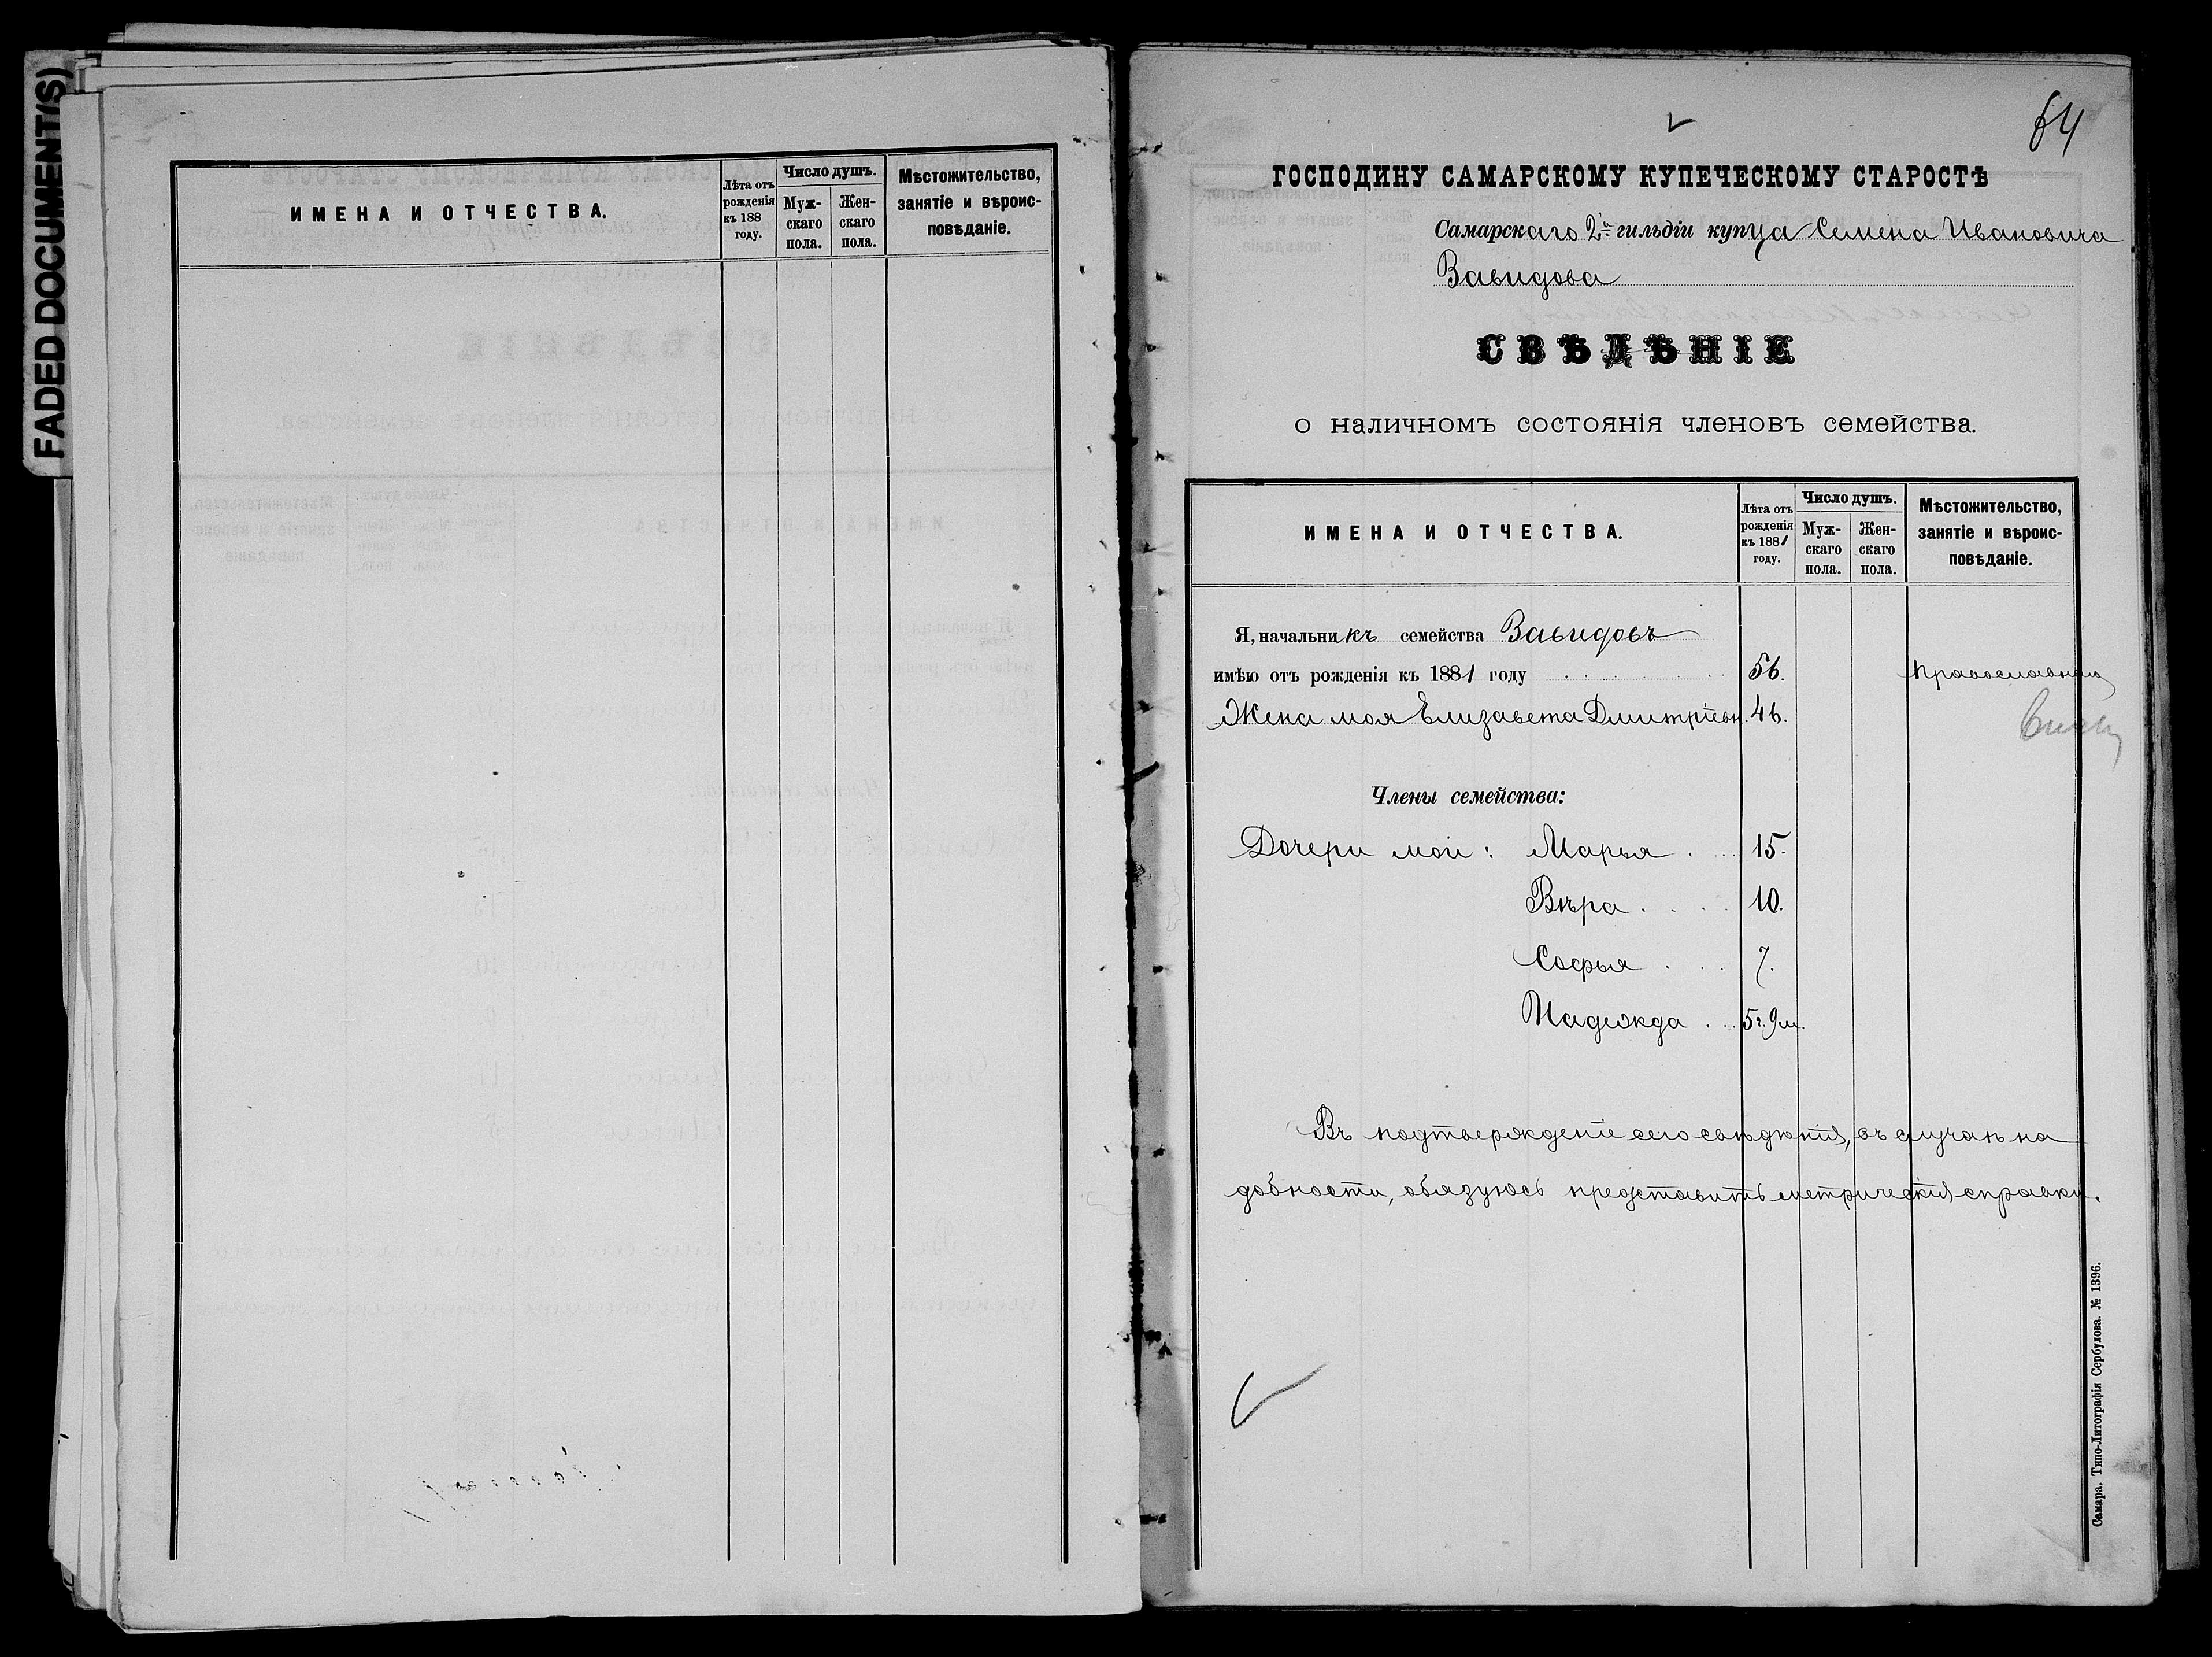 FADED DOCUMENT(S)
ИМЕНА И ОТЧЕСТВА.
Лѣта отъ
рожденія
къ 188
году.
Число душъ.
Муж-
скаго
пола.
Жен-
скаго
пола.
Мѣстожительство,
занятіе и вѣроис-
повѣданіе.
64
ГОСПОДИНУ САМАРСКОМУ КУПЕЧЕСКОМУ СТАРОСТѢ
Самарскаго 2й гильдіи купца Семена Ивановича
Завидова
СВѢДѢНІЕ
о наличномъ состоянія членовъ семейства.
ИМЕНА И ОТЧЕСТВА.
Лѣта отъ
рожденія
къ 1881
году.
Число душъ.
Муж-
скаго
пола.
Жен-
скаго
пола.
Мѣстожительство,
занятіе и вѣроис-
повѣданіе.
Я, начальникъ семейства Завидовъ
имѣю отъ рожденія къ 1881 году 56. Православные
Жена моя Елизавета Дмитріевн. 46.
Члены семейства:
Дочери мои: Марья . . 15.
Вѣра . . . 10.
Софья . . . 7.
Надежда . . 5 г. 9 м.
Въ подтвержденіе сего свѣдѣнія, въ случаѣ на
добности, обязуюсь представить метрическія справки.
Самара. Типо-Литографія Сербулова. № 1396.